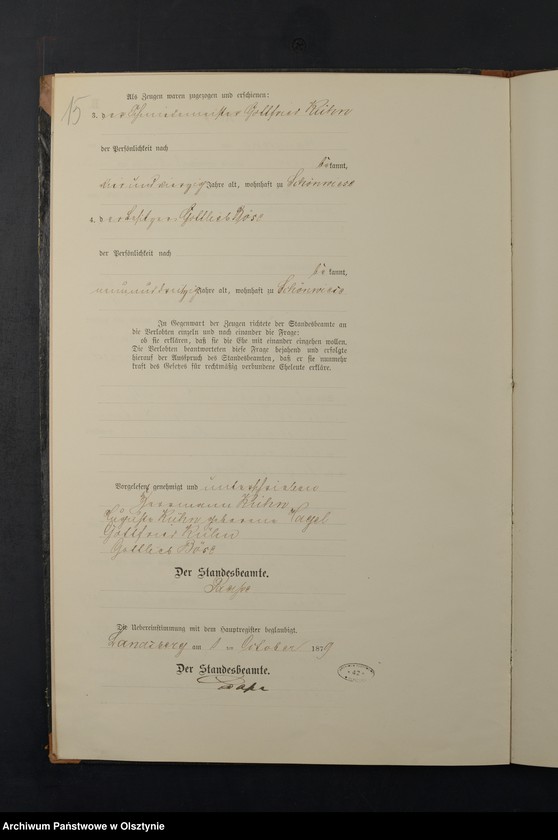 15
Als Zeugen waren zugezogen und erschienen:
3. der Schmiedemeister Gottfried Kühn
der Persönlichkeit nach
be kannt,
Jahre alt, wohnhaft zu Schönwiese
4. der Besitzer Gottlieb Böse
der Persönlichkeit nach
be kannt,
neununddreißig Jahre alt, wohnhaft zu Schönwiese
In Gegenwart der Zeugen richtete der Standesbeamte an
die Verlobten einzeln und nach einander die Frage:
ob sie erklären, daß sie die Ehe mit einander eingehen wollen.
Die Verlobten beantworteten diese Frage bejahend und erfolgte
hierauf der Ausspruch des Standesbeamten, daß er sie nunmehr
kraft des Gesetzes für rechtmäßig verbundene Eheleute erkläre.
Vorgelesen, genehmigt und unterschrieben
Herrmann Kühn
Auguste Kühn geborene
Gottfried Kühn
Gottlieb Böse
Der Standesbeamte.
Die Uebereinstimmung mit dem Hauptregister beglaubigt.
Landsberg am ten October 1879
Der Standesbeamte.
Archiwum Państwowe w Olsztynie